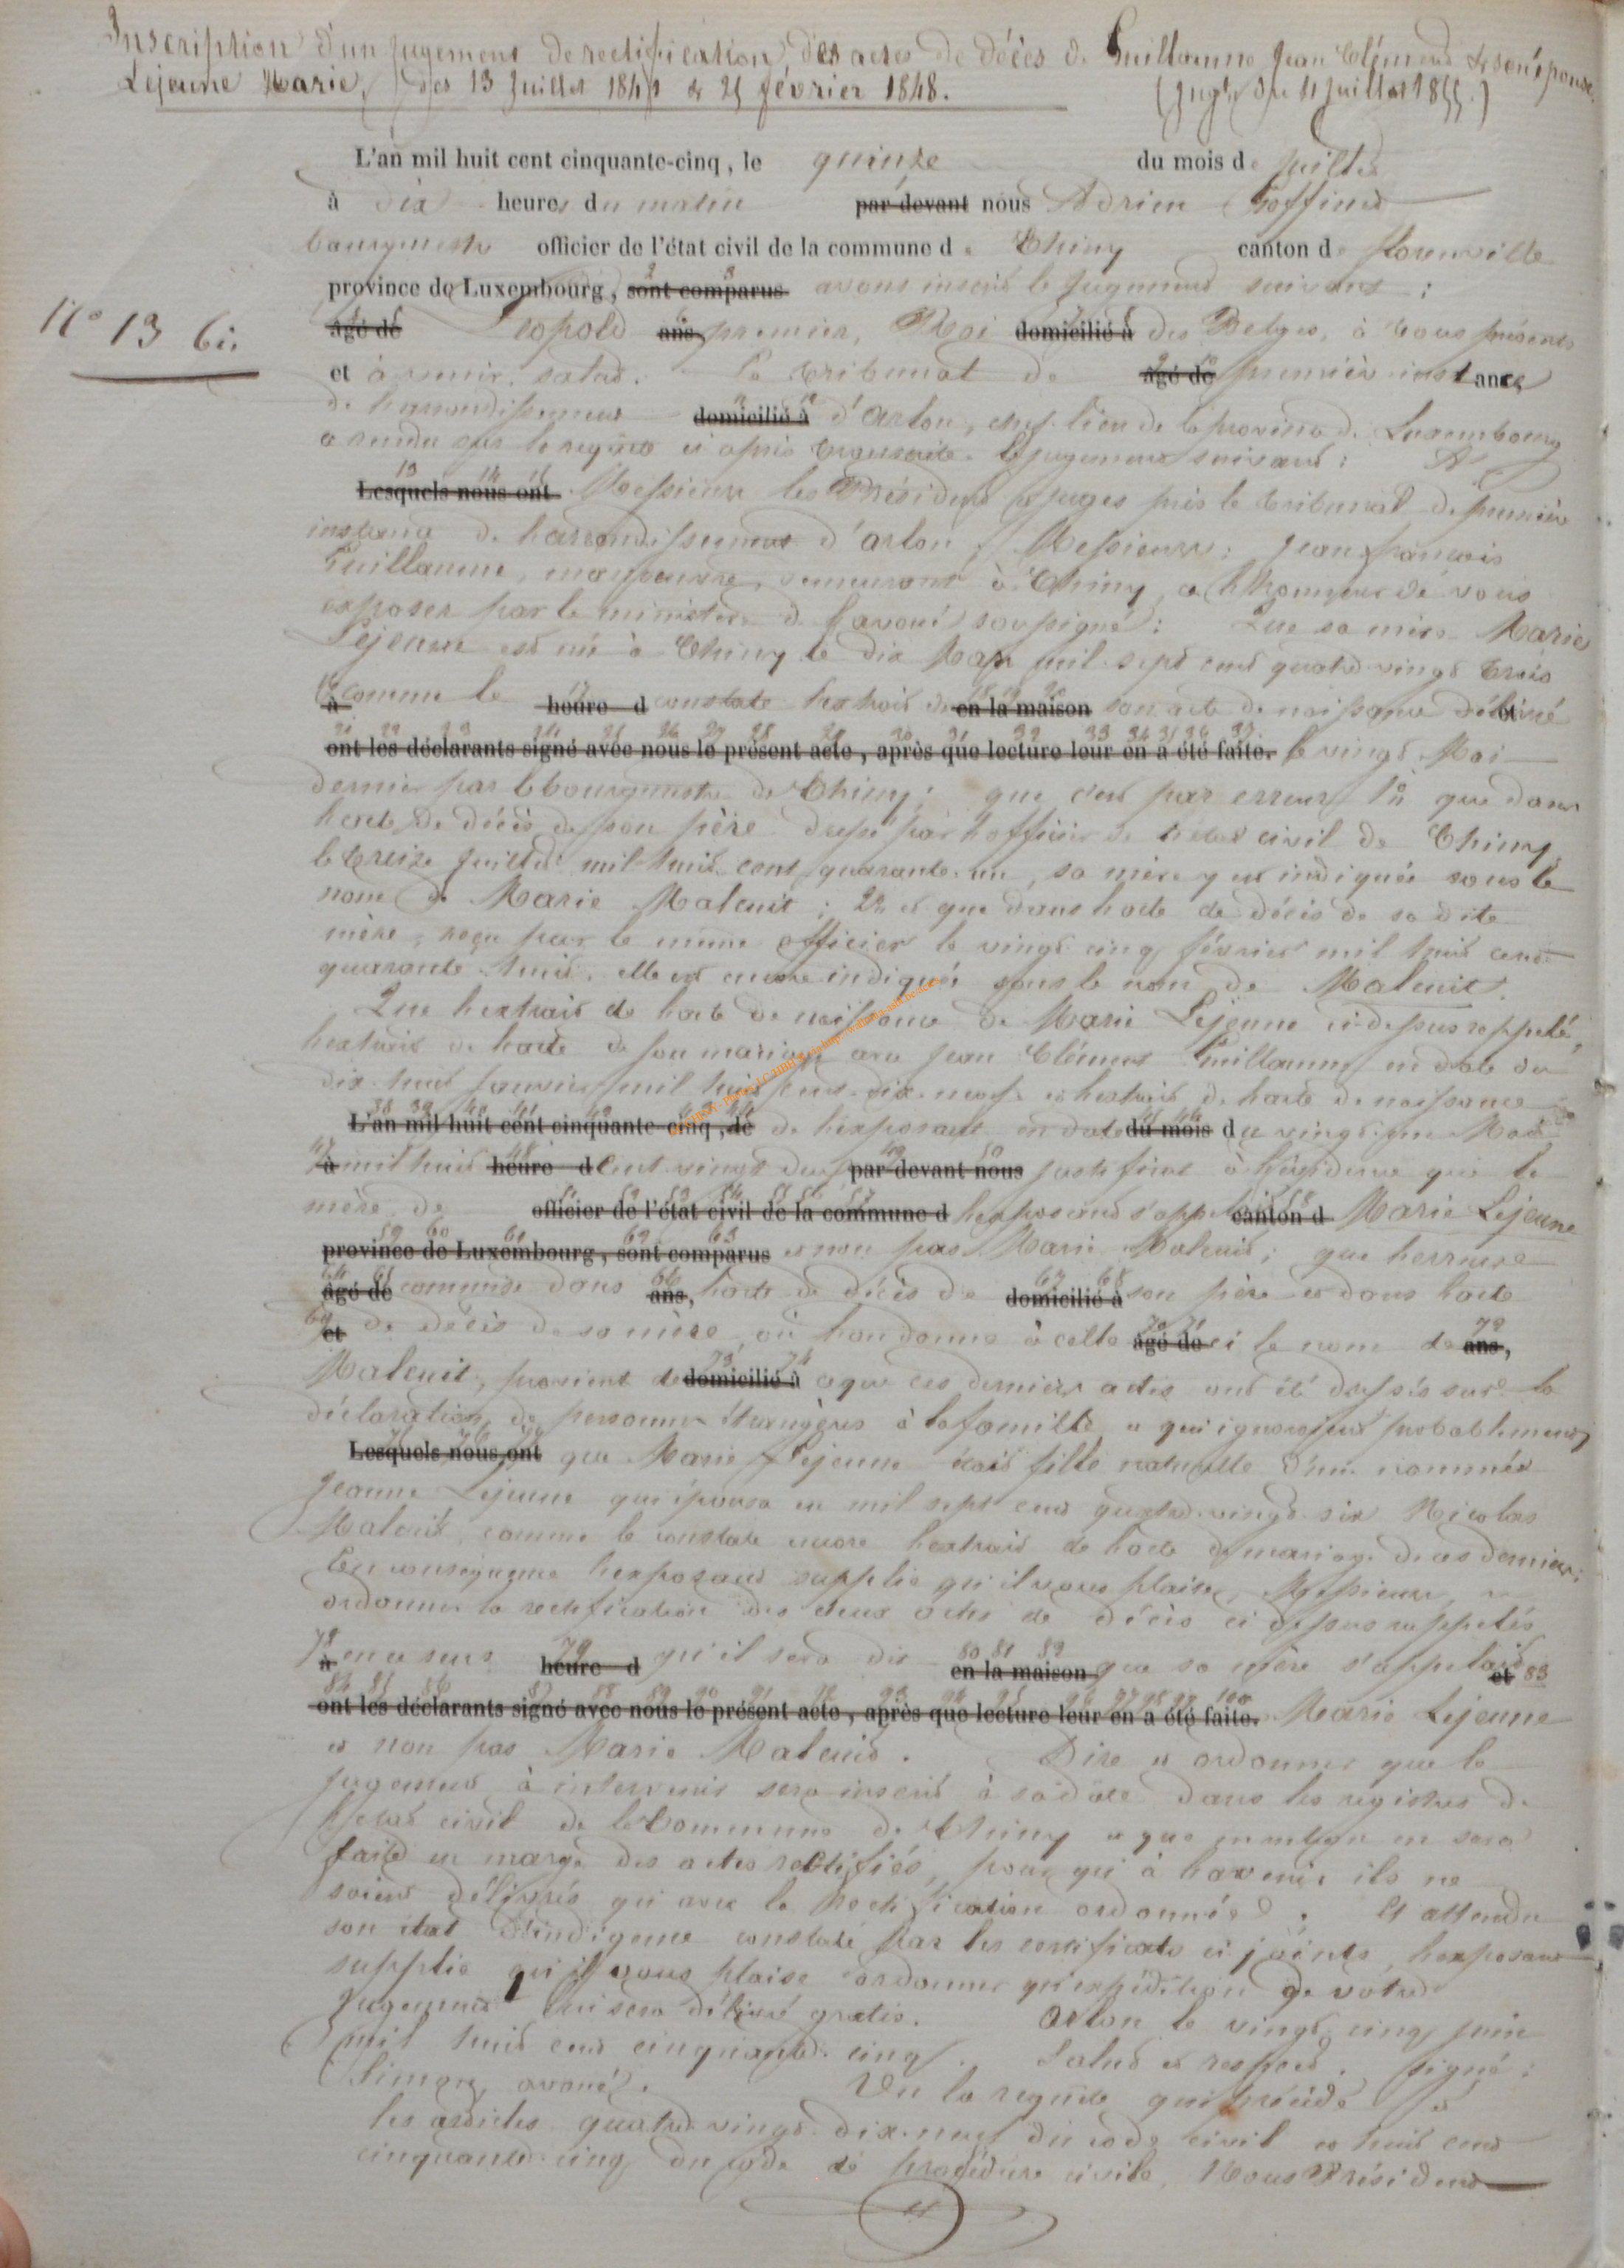 Inscription d'un jugement de rectification des actes de décès de Guillaume Jean Clément & son épouse
Lejeune Marie, des 13 Juillet 1841 & 25 février 1848. (Jugt du 11 Juillet 1855.)
L'an mil huit cent cinquante-cinq, le quinze du mois de juillet
à dix heures du matin par-devant nous Adrien Goffinet
bourgmestre officier de l'état civil de la commune de Chiny canton de florenville
province de Luxembourg, sont comparus avons inscrit le jugement suivant :
N° 13 bis
âgé de Léopold ans premier, Roi domicilié à des Belges, à tous présents
et à venir, salut. Le tribunal de âgé de première instance
de l'arrondissement domicilié à d'Arlon, chef-lieu de la province de Luxembourg
a rendu sur la requête ci après transcrite le jugement suivant : A
Lesquels nous ont Messieurs les Président & juges près le tribunal de première
instance de l'arrondissement d'arlon ; Messieurs : Jean françois
Guillaume, manoeuvre, demeurant à Chiny, a l'honneur de vous
exposer par le ministère de l'avoué soussigné : Que sa mère Marie
Lejeune est née à Chiny le dix Mars mil sept cent quatre vingt trois
à comme le heure d constate l'extrait de en la maison son acte de naissance délivré et
ont les déclarants signé avec nous le présent acte, après que lecture leur en a été faite. le vingt Mai
dernier par le bourgmestre de Chiny ; que c'est par erreur 1° que dans
l'acte de décès de son père dressé par l'officier de l'état civil de Chiny
le treize juillet mil huit cent quarante-un, sa mère y est indiquée sous le
nom de Marie Maleuit ; 2° et que dans l'acte de décès de sa dite
mère, reçu par le même officier le vingt cinq février mil huit cent
quarante huit, elle est encore indiquée sous le nom de Maleuit.
Que l'extrait de l'acte de naissance de Marie Lejeune ci-dessus rappelé,
l'extrait de l'acte de son mariage avec Jean Clément Guillaume en date du
dix huit janvier mil huit cent dix-neuf & l'extrait de l'acte de naissance
L'an mil huit cent cinquante-cinq, le de l'exposant en date du mois du vingt-un Mars
à mil huit heure d cent vingt deux par-devant nous justifient à l'évidence que la
mère de officier de l'état civil de la commune d l'exposant s'appelait canton d Marie Lejeune
province de Luxembourg, sont comparus et non pas Marie Maleuit ; que l'erreur
âgé de commise dans ans, l'acte de décès de domicilié à son père et dans l'acte
et de décès de sa mère, où l'on donne à celle âgé de ci le nom de ans,
Maleuit, provient de domicilié à ce que ces derniers actes ont été dressés sur la
déclaration de personnes étrangères à la famille & qui ignoraient probablement
Lesquels nous ont que Marie Lejeune était fille naturelle d'une nommée
Jeanne Lejeune qui épousa en mil sept cent quatre-vingt-six Nicolas
Maleuit, comme le constate encore l'extrait de l'acte de mariage de ces derniers ;
En conséquence l'exposant supplie qu'il vous plaise, Messieurs,
ordonner la rectification des deux actes de décès ci dessus rappelés
à en ce sens heure d qu'il sera dit en la maison que sa mère s'appelait et
ont les déclarants signé avec nous le présent acte, après que lecture leur en a été faite. Marie Lejeune
et non pas Marie Maleuit. Dire et ordonner que le
jugement à intervenir sera inscrit à sa date dans les registres de
l'état civil de la Commune de Chiny & que mention en sera
faite en marge des actes rectifiés, pour qu'à l'avenir ils ne
soient délivrés qu'avec la rectification ordonnée. Et attendu
son état d'indigence constaté par les certificats ci joints, l'exposant
supplie qu'il vous plaise ordonner qu'expédition de votre
jugement lui sera délivré gratis. Arlon le vingt cinq juin
mil huit cent cinquante cinq. Salut et respect. signé :
avoué. Vu la requête qui précède &
les articles quatre vingt dix-neuf du code civil & huit cent
cinquante-cinq du code de procédure civile, Nous Président